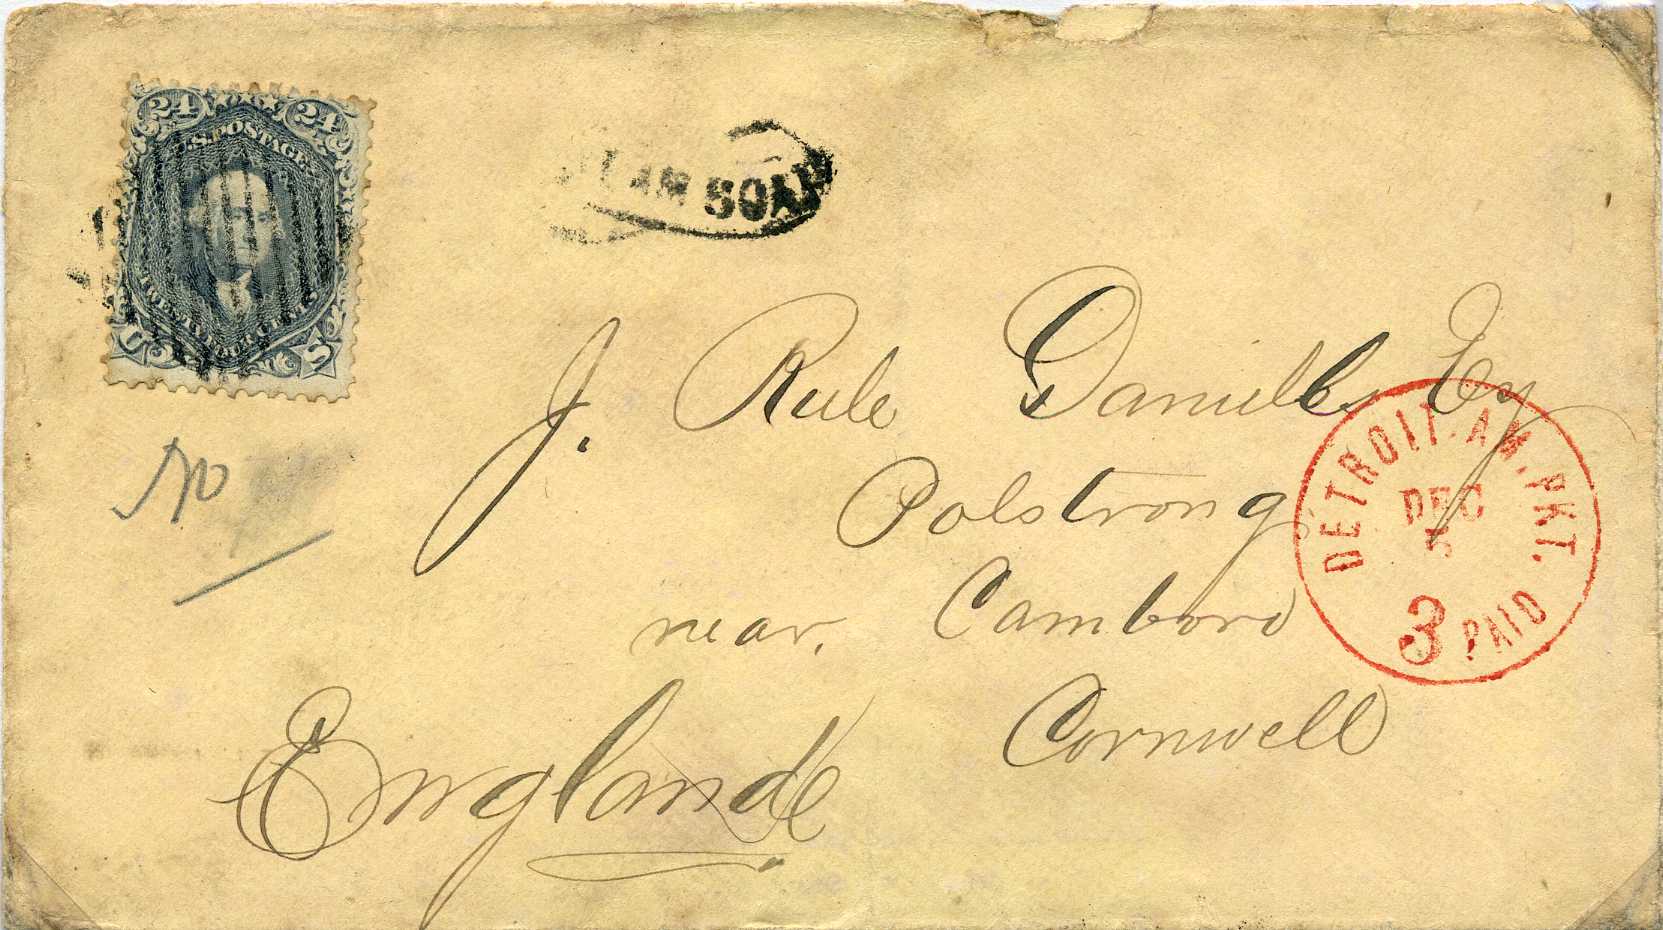 24 24
U.S. POSTAGE
TWENTY FOUR CENTS
U S
J. Rule Daniells Esq
Polstrong
near. Camboro
Cornwell
England
DETROIT. AM. PKT.
DEC
5
3 PAID